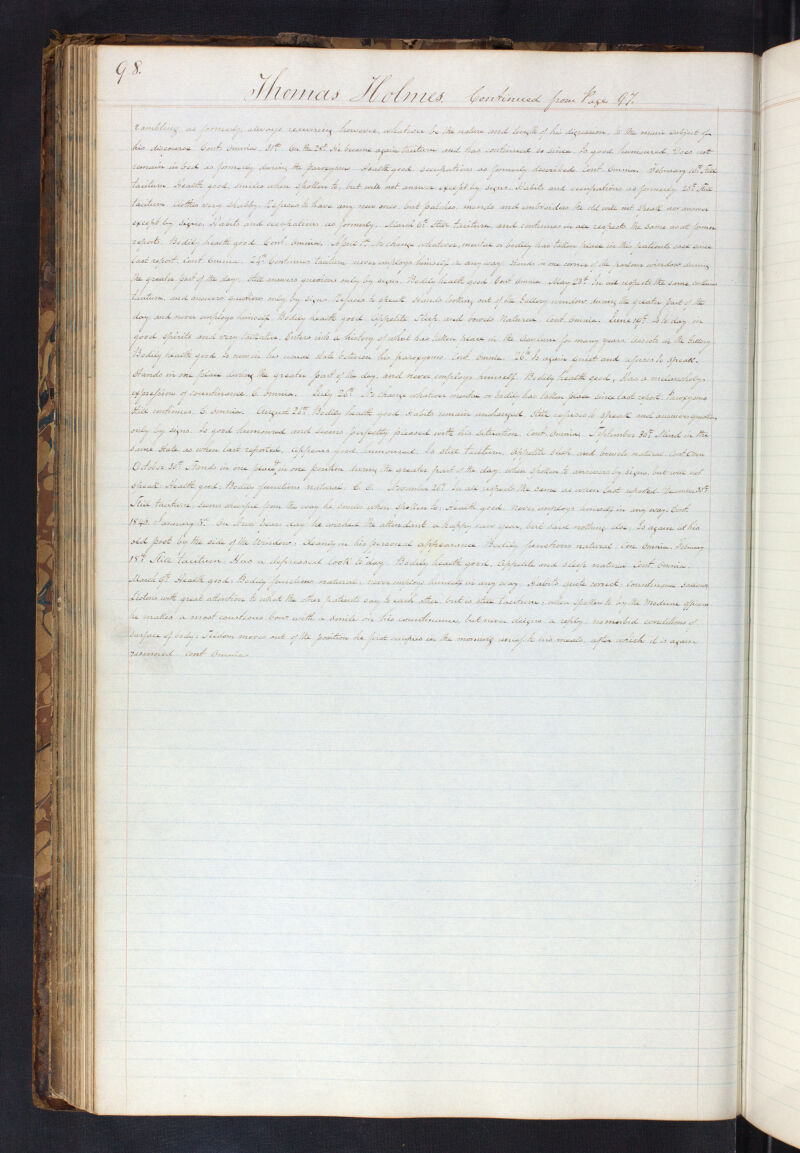 98.
Thomas Holmes. Continued from Page 97.
rambling as formerly, always recurring however, whatever be the nature and length of his digression, to the main subject of
his discourse Cont Omnia. 31st. On the 28th. He became again taciturn and has continued so since. Is good humoured Does not
remain in bed as formerly during the paroxysm. Health good Occupations as formerly described Cont. Omnia. February 10th. Still
taciturn Health good smiles when spoken to, but will not answer except by signs. Habits and occupations as formerly. Still
taciturn Clothes very shabby. Refuses to have any new ones, but patches, mends and embroiders the old will not speak nor answer
except by signs. Habits and occupations as formerly. March 6th. Still taciturn, and continues in all respects the same as at former
reports. Bodily health good Cont. Omnia. April 1st. No change whatever, mental or bodily has taken place in this patients case since
last report. Cont Omnia. 24th. Continues taciturn never employs himself in any way. Stands in one corner of the window during
the greater part of the day. Still answers questions only by signs. Bodily health good Cont Omnia. May 23d. In all respects the same continues
taciturn, and answers questions only by signs. Refuses to speak Stands looking out of the Gallery window during the greater part of the
day and never employs himself. Bodily health good Appetite Sleep and bowels Natural. Cont. Omnia. June 19th. Is to day in
good spirits and very talkative. Enters into a history of what has taken place in the Asylum for many years existe in the Gallery
Bodily health good Is now in his usual state between his paroxysms Cont. Omnia. 26th Is again quiet and refuses to speak.
Stands in one place during the greater part of the day, and never employs himself. Bodily health good, Has a melancholy
expression of countenance C. Omnia. July 26th. No change whatever mental or bodily has taken place since last report. Paroxysm
still continues. C. Omnia. August 26th. Bodily health good Habits remain unchanged. Still refuses to speak and answers questions
only by signs. Is good humoured and seems perfectly pleased with his situation Cont Omnia. September 30th. Stand in the
same state as when last reported, appears good humoured. Is still taciturn, appetite sleep and bowels natural Cont Om
October 31st. Stands in one place & in one position during the greater part of the day: when spoken to answers by signs, but will not
speak. Health good: Bodily functions natural: C. O. November 26th In all respects the same as when last reported December 30th.
Still taciturn: seems cheerful from the way he smiles when spoken to: Health good. never employs himself in any way. Cont.
1846. January 3d. On New Years day he wished the attendant a happy new year, but said nothing else. Is again at his
old post by the side of the Window: cleanly in his personal appearance Bodily functions natural. Con Omnia. February
18th. Still taciturn. Has a depressed look to day. Bodily health good, appetite and sleep natural Cont. Omnia.
March 9th. Health good. Bodily functions natural: never employs himself in any way. Habits quite correct. Countenance
listens with great attention to what the other patients say to each other but is still taciturn: when spoken to by the Medical officers
he makes a most courteous bow with a smile on his countenance, but never deigns a reply: no morbid conditions of
surface of body: Seldom moves out of the position he first occupies in the morning except to his meals, after which it is again
resumed. Cont Omnia